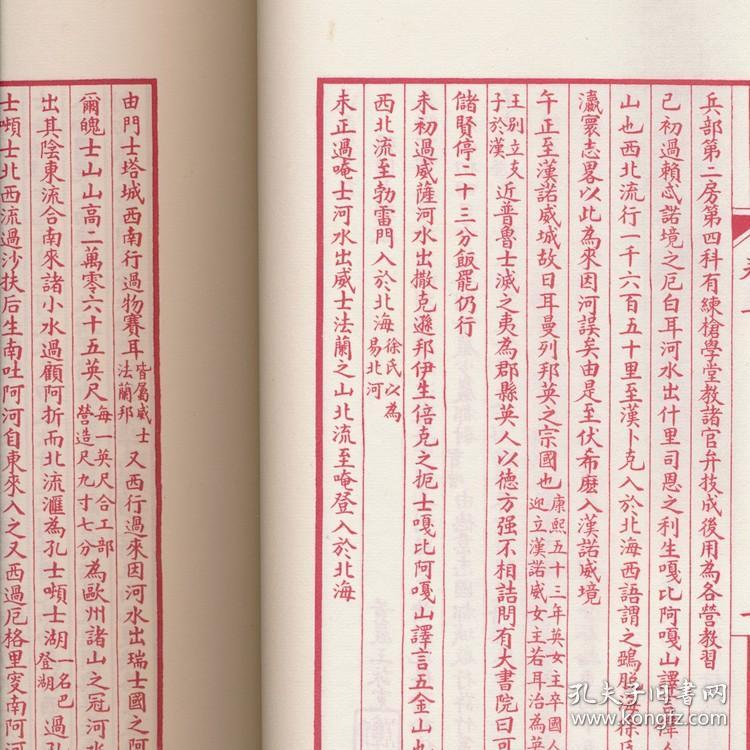 兵部第二房第四科有練槍學堂教諸官弁技成後用為各營教習
已初過賴忒諾境之厄白耳河水出什里司恩之利生嘎比阿嘎山譯言偉
山也西北流行一千六百五十里至漢卜克入於北海西語謂之鵶脫海徐
瀛寰志畧以此為來因河誤矣由是至伏希麽入漢諾威境
午正至漢諾威城故日耳曼列邦英之宗國也康熙五十三年英女主卒國人迎立漢諾威女主若耳治為英
王別立支子於漢近普魯士滅之夷為郡縣英人以德方强不相詰問有大書院曰可
儲賢停二十三分飯罷仍行
未初過威薩河水出撒克遜邦伊生倍克之扼士嘎比阿嘎山譯言五金山也
西北流至勃雷門入於北海徐氏以為易北河
未正過唵士河水出威士法蘭之山北流至唵登入於北海
由門士塔城西南行過物賽耳皆屬威士法蘭邦又西行過來因河水出瑞士國之阿
爾魄士山山高二萬零六十五英尺每一英尺合工部營造尺九寸七分為歐州諸山之冠河水
出其陰東流合南來諸小水過顧阿折而北流滙為孔士噸士湖一名巴登湖過孔
士噸士北西流過沙扶后生南吐阿河自東來入之又西過厄格里窔南阿河
孔夫子旧书网
www.kongfz.com